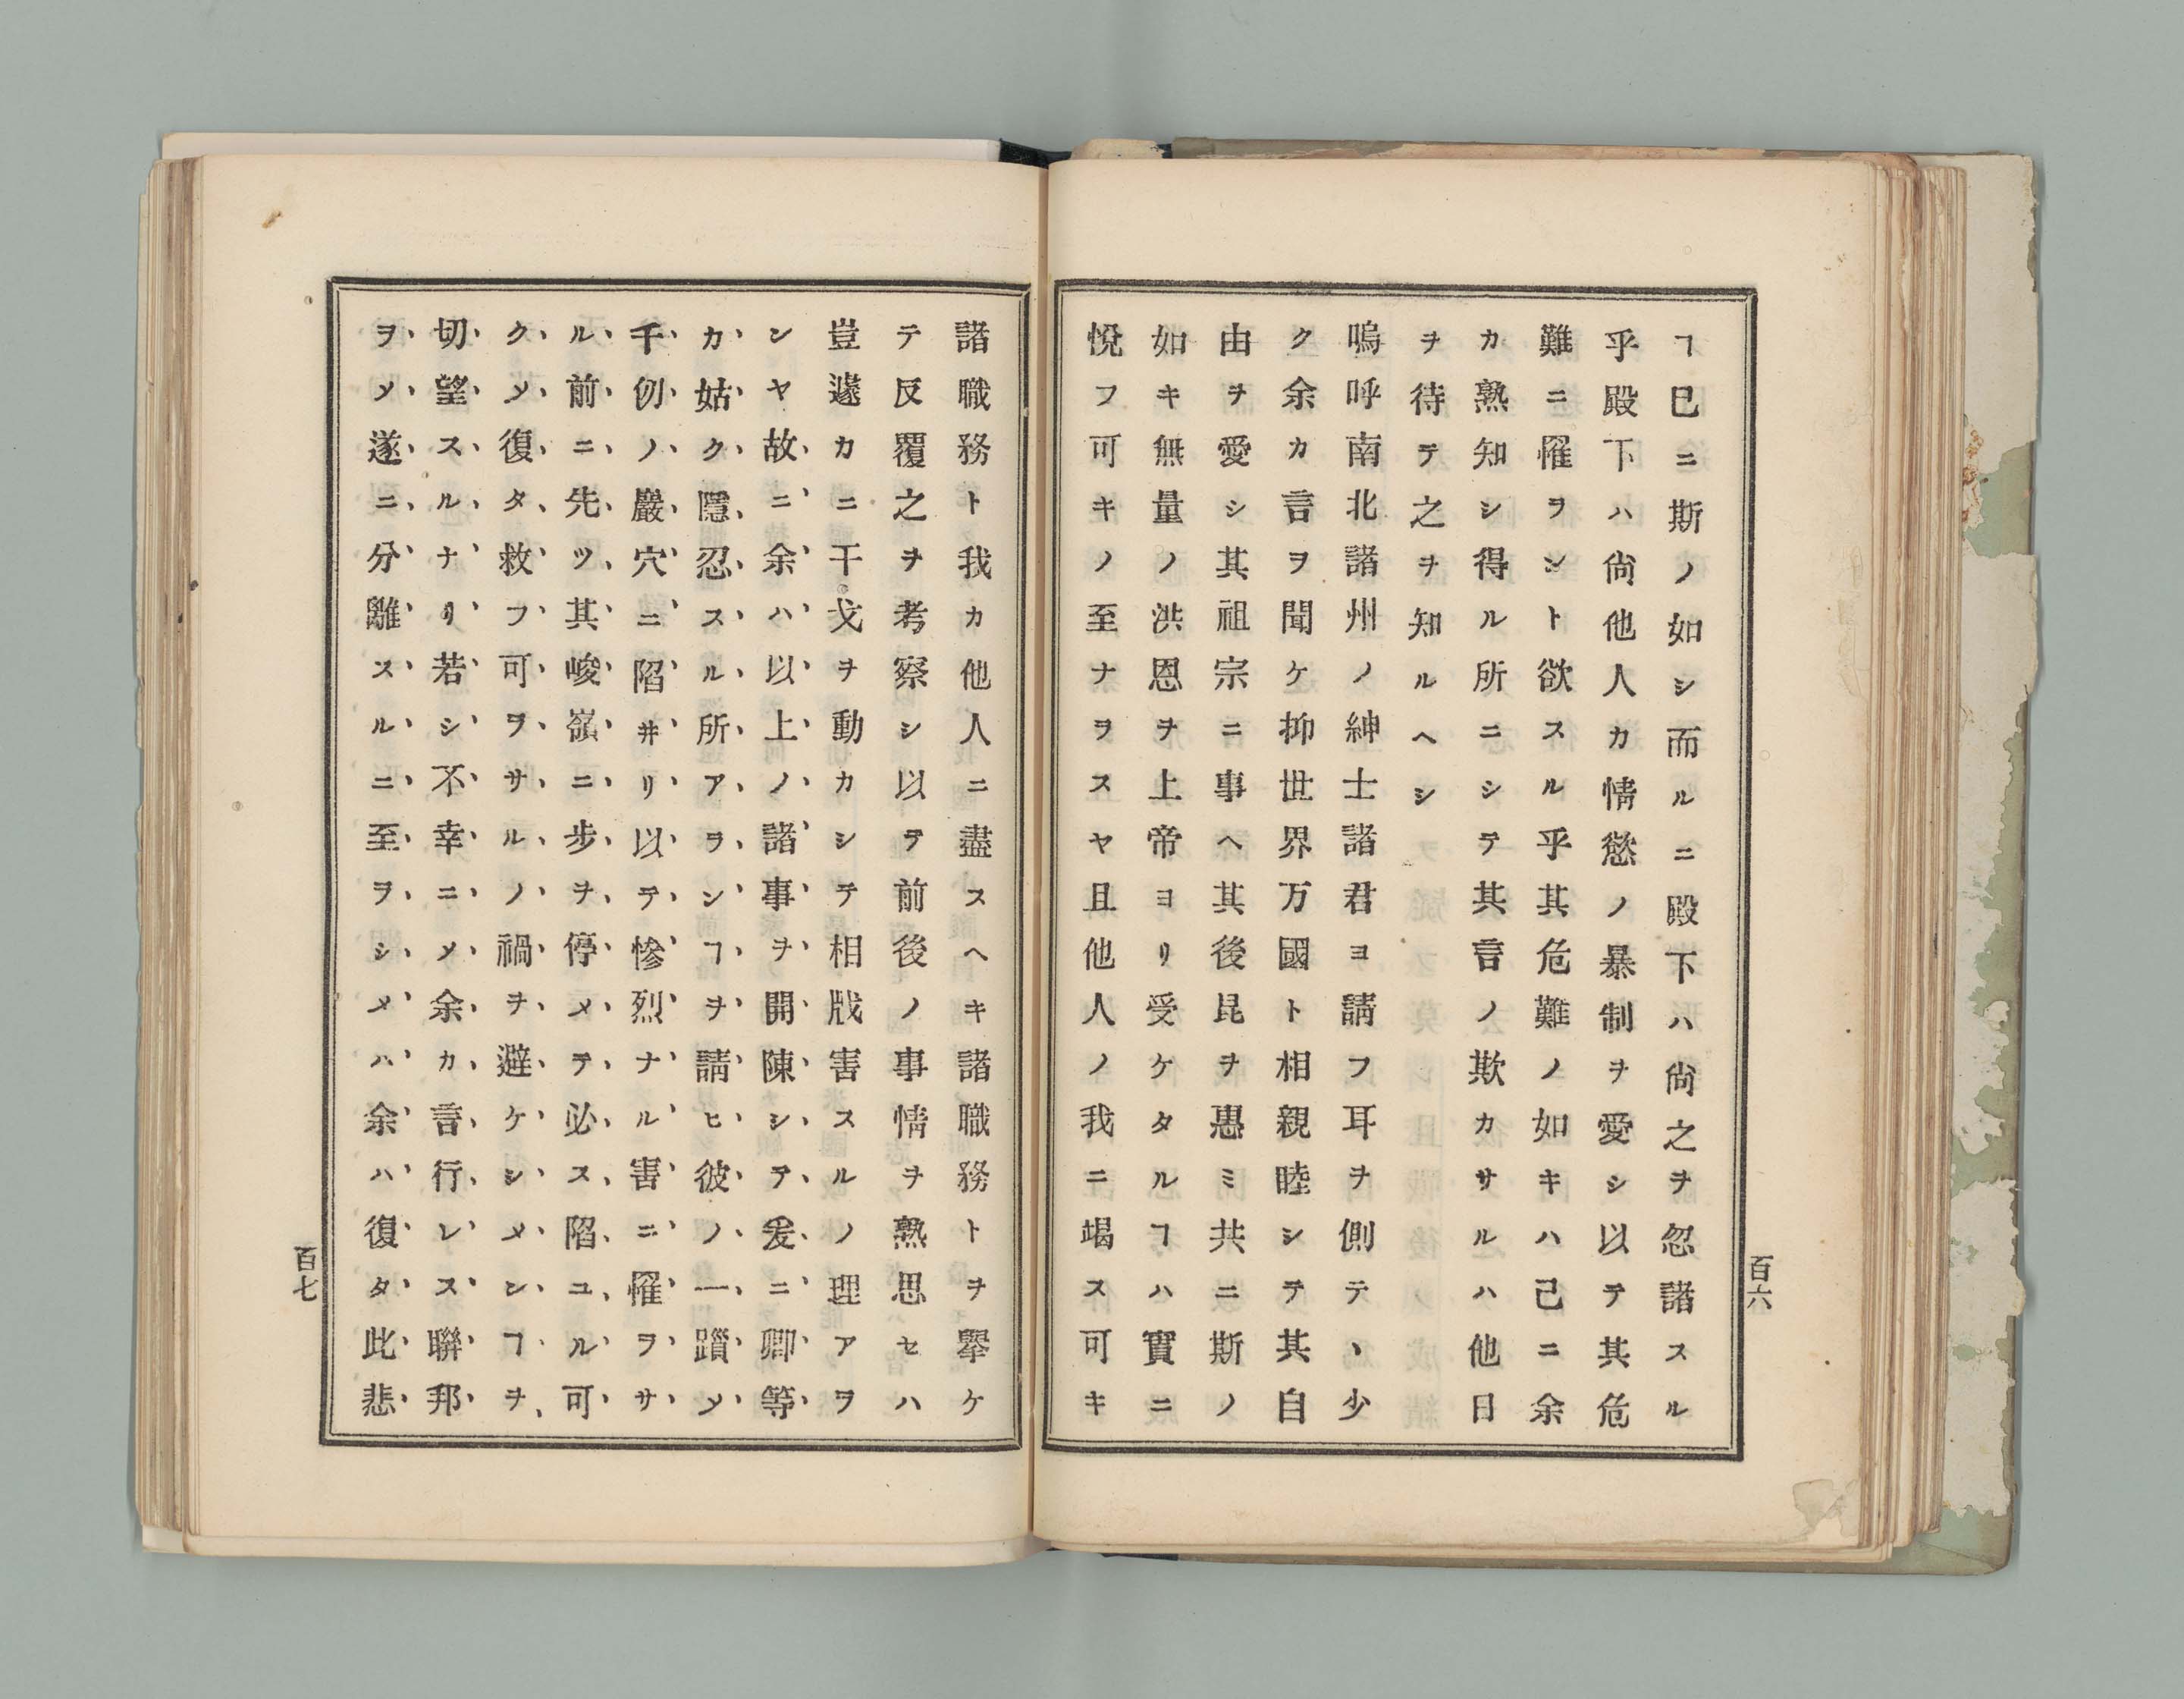 ヿ已ニ斯ノ如シ而ルニ殿下ハ尙之ヲ忽諸スル
乎殿下ハ尙他人カ情慾ノ暴制ヲ愛シ以テ其危
難ニ罹ラント欲スル乎其危難ノ如キハ己ニ余
カ熟知シ得ル所ニシテ其言ノ欺カサルハ他日
ヲ待テ之ヲ知ルヘシ
嗚呼南北諸州ノ紳士諸君ヨ請フ耳ヲ側テヽ少
ク余カ言ヲ聞ケ抑世界万國ト相親睦シテ其自
由ヲ愛シ其祖宗ニ事ヘ其後昆ヲ惠ミ共ニ斯ノ
如キ無量ノ洪恩ヲ上帝ヨリ受ケタルヿハ實ニ
悅フ可キノ至ナラスヤ且他人ノ我ニ竭ス可キ
百六
諸職務ト我カ他人ニ盡スヘキ諸職務トヲ擧ケ
テ反覆之ヲ考察シ以テ前後ノ事情ヲ熟思セハ
豈遽カニ干戈ヲ動カシテ相戕害スルノ理アラ
ンヤ故ニ余ハ以上ノ諸事ヲ開陳シテ爰ニ卿等
カ姑ク隱忍スル所アランヿヲ請ヒ彼ノ一躓メ
千仞ノ巖穴ニ陷井リ以テ慘烈ナル害ニ罹ラサ
ル前ニ先ツ其峻嶺ニ步ヲ停メテ必ス陷ユル可
クメ復タ救フ可ラサルノ禍ヲ避ケシメンヿヲ
切望スルナリ若シ不幸ニメ余カ言行レス聯邦
ヲメ遂ニ分離スルニ至ヲシメハ余ハ復タ此悲
百七